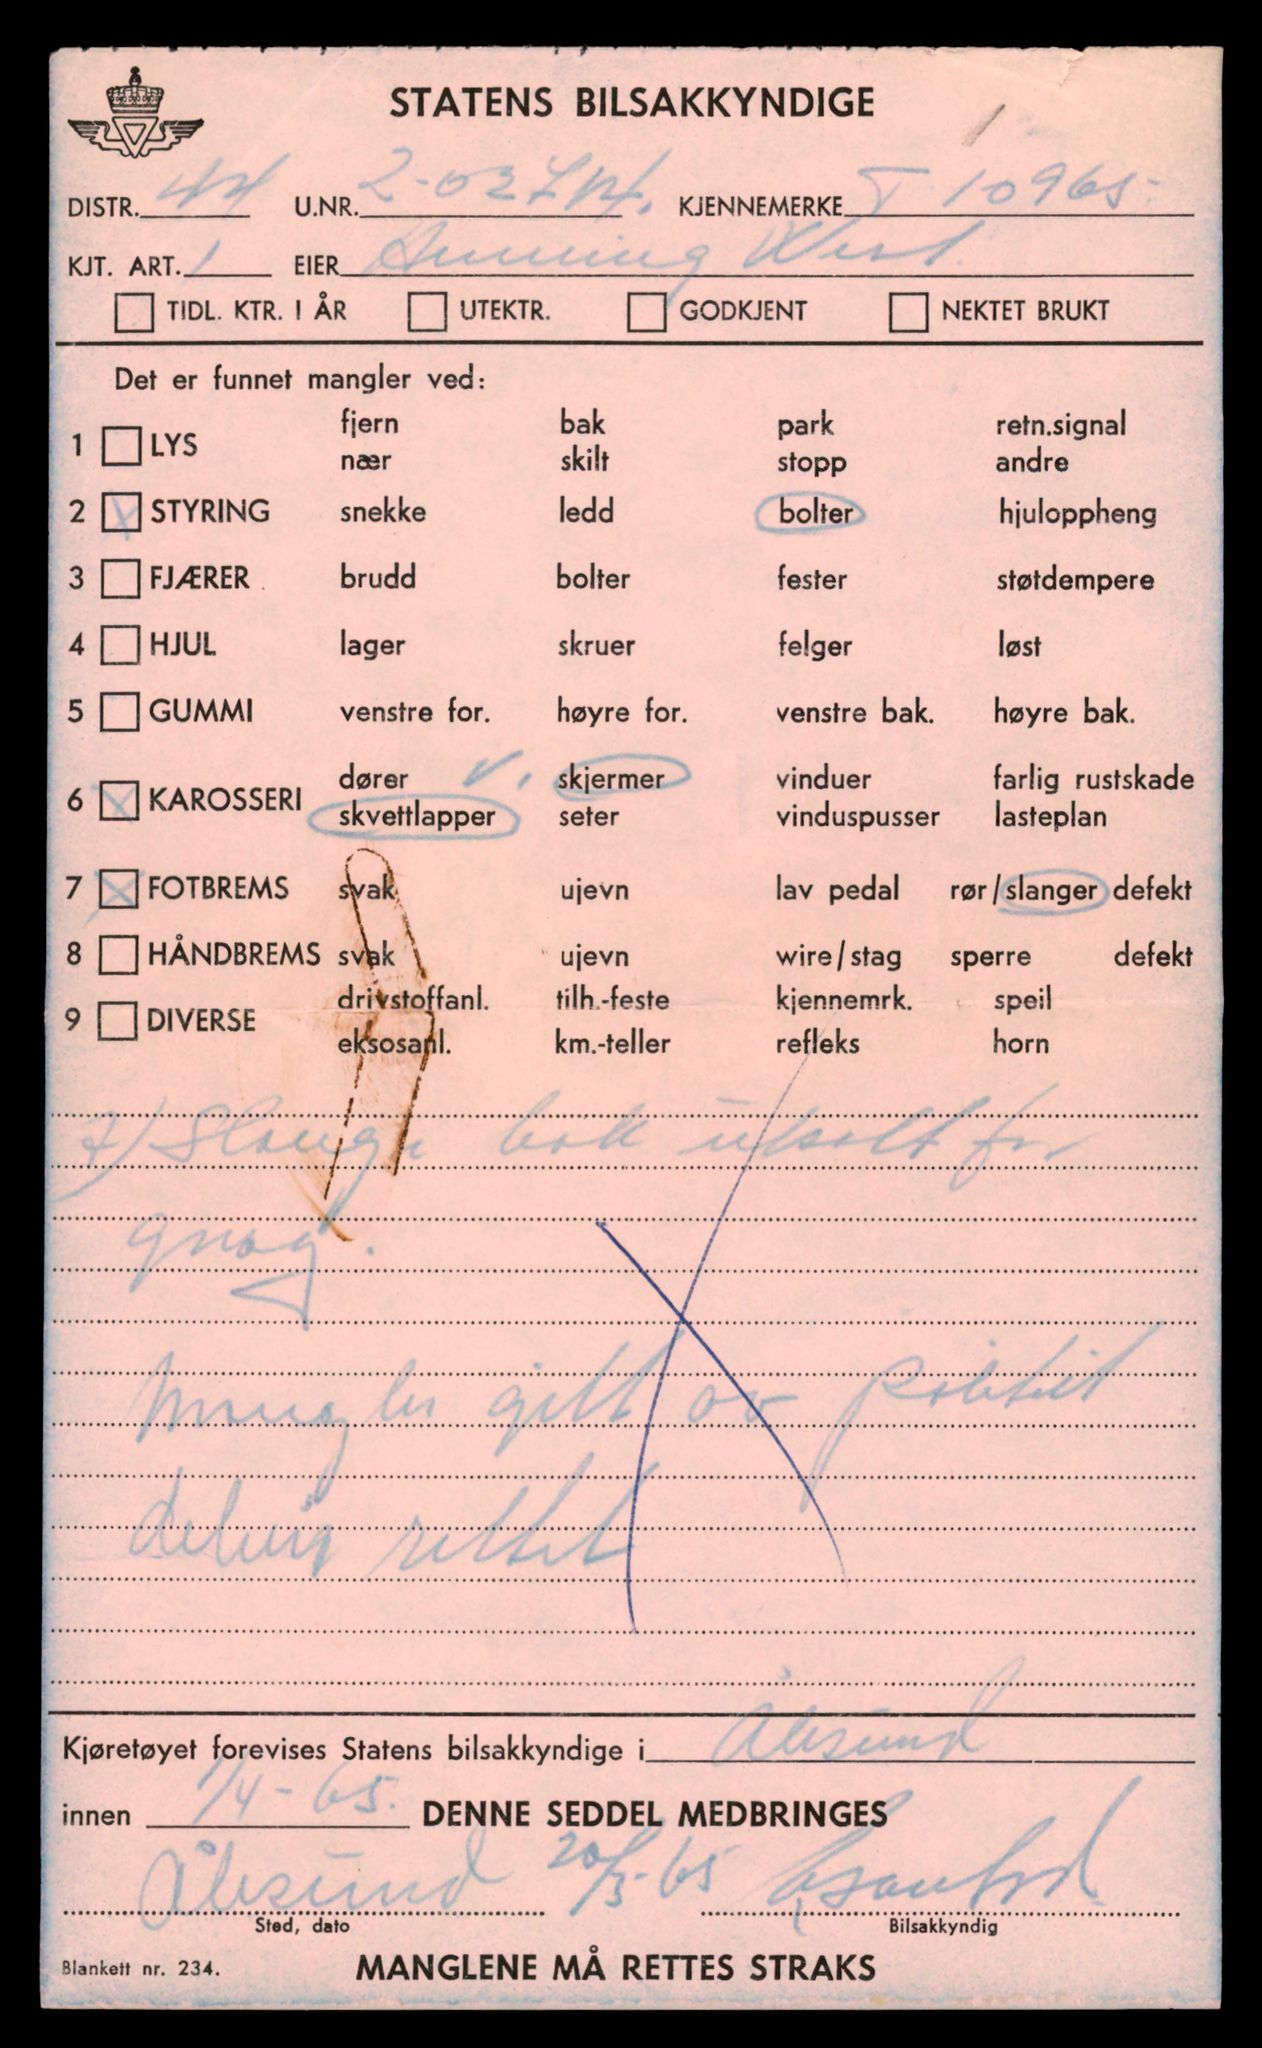 STATENS BILSAKKYNDIGE
DISTR. 44 U.NR. KJENNEMERKE T 10965
KJT. ART. 1 EIER
TIDL. KTR. I ÅR UTEKTR. GODKJENT NEKTET BRUKT
Det er funnet mangler ved:
fjern bak park retn.signal
1 LYS
nær skilt stopp andre
2 STYRING snekke ledd bolter hjuloppheng
3 FJÆRER brudd bolter fester støtdempere
4 HJUL lager skruer felger løst
5 GUMMI venstre for. høyre for. venstre bak. høyre bak.
dører v. skjermer vinduer farlig rustskade
6 KAROSSERI
skvettlapper seter vinduspusser lasteplan
7 FOTBREMS svak ujevn lav pedal rør/slanger defekt
8 HÅNDBREMS svak ujevn wire/stag sperre defekt
drivstoffanl. tilh.-feste kjennemrk. speil
9 DIVERSE
eksosanl. km.-teller refleks horn
7) Slange bak utsatt for
gnag.
Mangler gitt av politiet
delvis rettet
Kjøretøyet forevises Statens bilsakkyndige i Ålesund
innen 1/4-65. DENNE SEDDEL MEDBRINGES
Ålesund 20/3-65
Sted, dato Bilsakkyndig
Blankett nr. 234. MANGLENE MÅ RETTES STRAKS